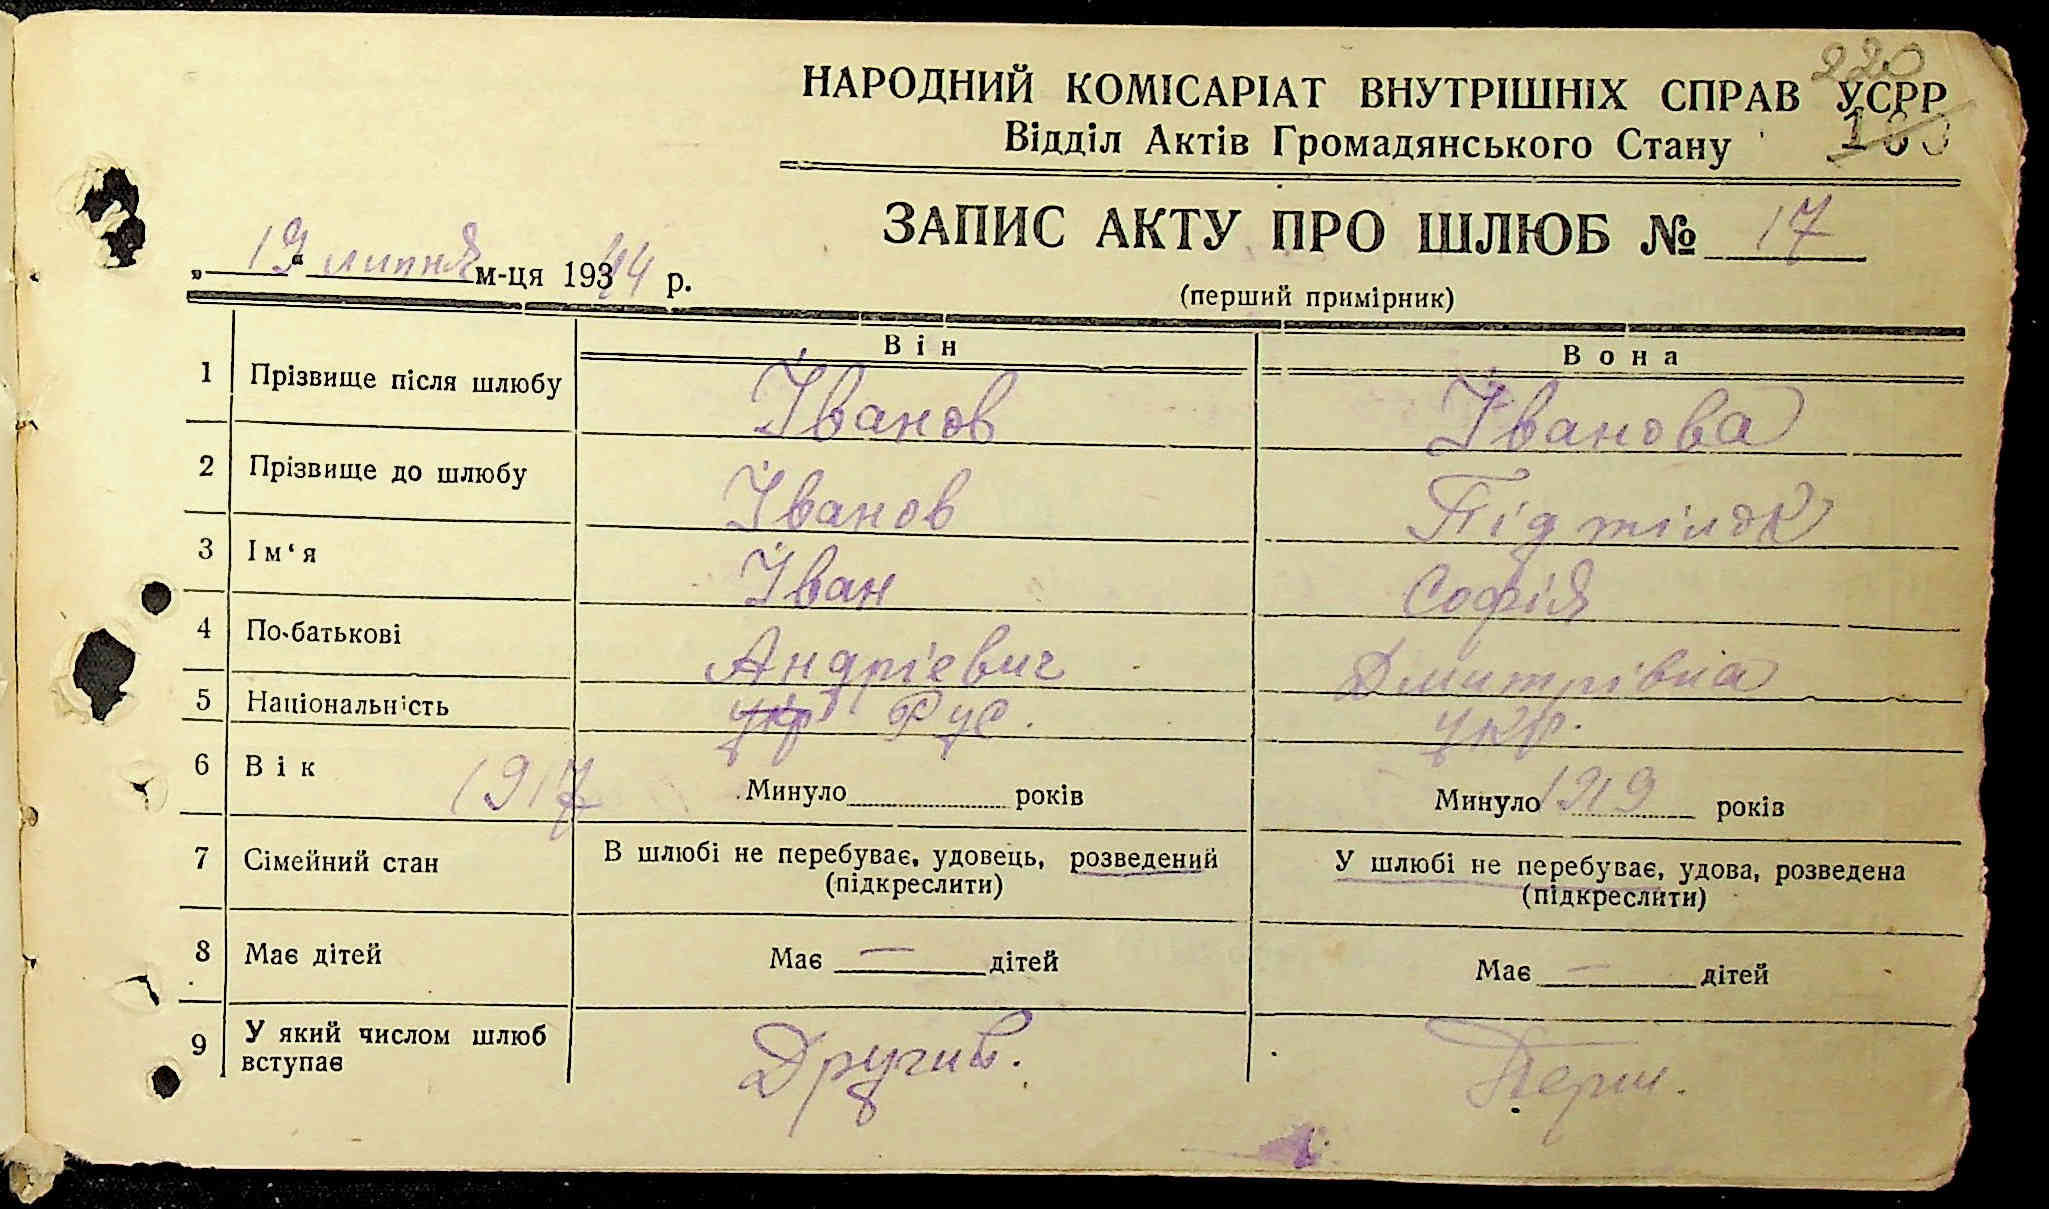 220
НАРОДНИЙ КОМІСАРІАТ ВНУТРІШНІХ СПРАВ УСРР
Відділ Актів Громадянського Стану
ЗАПИС АКТУ ПРО ШЛЮБ № 17
„19“ липня м-ця 19344 р.
(перший примірник)
Він Вона
1 Прізвище після шлюбу Іванов Іванова
2 Прізвище до шлюбу Іванов Підтілок
3 Ім‘я Іван Софія
4 По-батькові Андрієвич Дмитрівна
5 Національність укр Рус. укр.
6 Вік 1917 Минуло років Минуло 1919 років
7 Сімейний стан В шлюбі не перебуває, удовець, розведений У шлюбі не перебуває, удова, розведена
(підкреслити) (підкреслити)
8 Має дітей Має — дітей Має — дітей
9 У який числом шлюб вступає Другий. Перш.